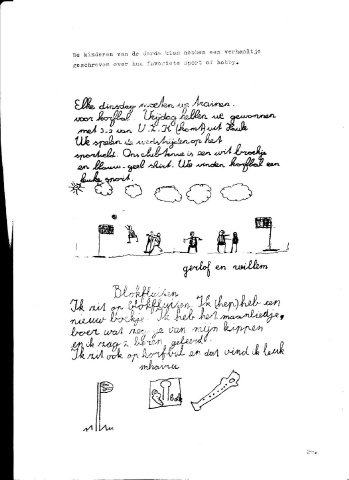 De kinderen van de derde klas hebben een verhaaltje
geschreven over hun favoriete sport of hobby.
Elke dinsdag moeten we trainen.
voor korfbal Vrijdag hebben we gewonnen
met 3-2 van V.Z.K
We spelen de wedstrijden op het
sportveld. Ons clubtenue is een wit broekje
en blauw-geel shirt. We vinden korfbal een
leuke sport.
gerlof en willem
Blokfluiten
Ik zit op blokfluiten. Ik (hep) heb een
nieuw boekje. Ik heb het maanliedje,
boer wat zeg je van mijn kippen
en ik nog 2 leren geleerd.
Ik zit ook op korfbal en dat vind ik leuk